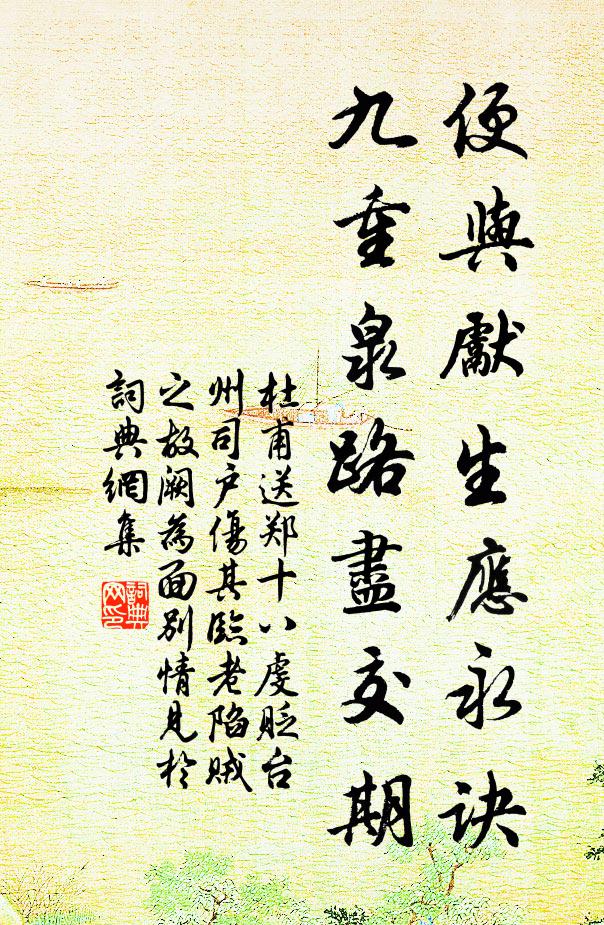 便與獻生應永訣
九重泉路盡交期
杜甫送郑十八虔貶台
州司户傷其臨老陷賊
之故闕為面别情見於
詞典網集
詞典
网印